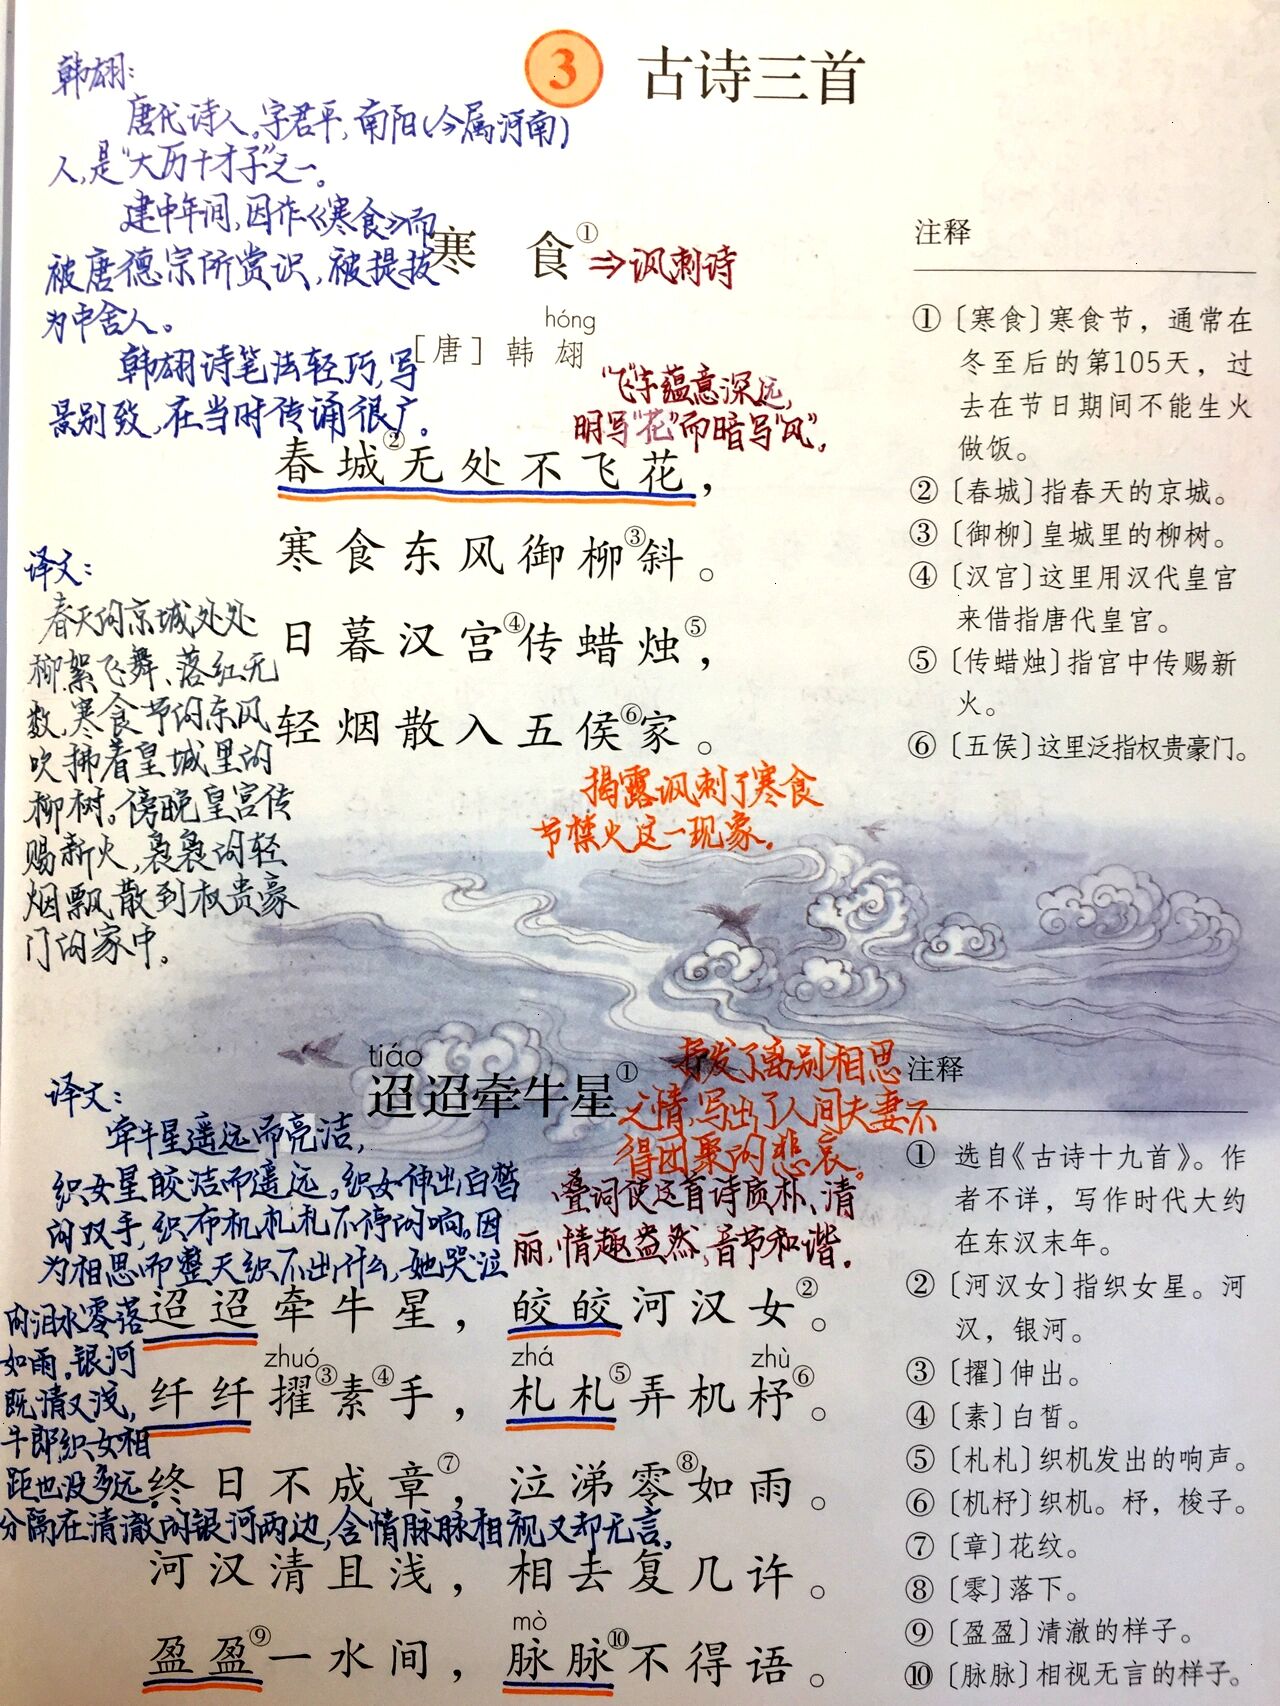 3 古诗三首
韩翃：
唐代诗人。字君平，南阳（今属河南）
人，是“大历十才子”之一。
建中年间，因作《寒食》而
被唐德宗所赏识，被提拔
为中舍人。
韩翃诗笔法轻巧，写
景别致，在当时传诵很广。
寒食①⇒讽刺诗
hóng
［唐］韩翃
“飞”字蕴意深远，
明写“花”而暗写“风”。
春城②无处不飞花，
寒食东风御柳③斜。
日暮汉宫④传蜡烛⑤，
轻烟散入五侯⑥家。
揭露讽刺了寒食
节禁火这一现象。
译文：
春天的京城处处
柳絮飞舞、落红无
数，寒食节的东风
吹拂着皇城里的
柳树。傍晚皇宫传
赐新火，袅袅的轻
烟飘散到权贵豪
门的家中。
注释
①〔寒食〕寒食节，通常在
冬至后的第105天，过
去在节日期间不能生火
做饭。
②〔春城〕指春天的京城。
③〔御柳〕皇城里的柳树。
④〔汉宫〕这里用汉代皇宫
来借指唐代皇宫。
⑤〔传蜡烛〕指宫中传赐新
火。
⑥〔五侯〕这里泛指权贵豪门。
tiáo
迢迢牵牛星①
抒发了离别相思
之情，写出了人间夫妻不
得团聚的悲哀。
叠词使这首诗质朴、清
丽，情趣盎然，音节和谐。
译文：
牵牛星遥远而亮洁，
织女星皎洁而遥远。织女伸出白皙
的双手，织布机札札不停的响。因
为相思而整天织不出什么，她哭泣
的泪水零落
如雨。银河
既清又浅，
牛郎织女相
距也没多远。
分隔在清澈的银河两边，含情脉脉相视又却无言。
迢迢牵牛星，皎皎河汉女②。
zhuó zhá zhù
纤纤擢③素④手，札札⑤弄机杼⑥。
终日不成章⑦，泣涕零⑧如雨。
河汉清且浅，相去复几许。
mò
盈盈⑨一水间，脉脉⑩不得语。
注释
①选自《古诗十九首》。作
者不详，写作时代大约
在东汉末年。
②〔河汉女〕指织女星。河
汉，银河。
③〔擢〕伸出。
④〔素〕白皙。
⑤〔札札〕织机发出的响声。
⑥〔机杼〕织机。杼，梭子。
⑦〔章〕花纹。
⑧〔零〕落下。
⑨〔盈盈〕清澈的样子。
⑩〔脉脉〕相视无言的样子。